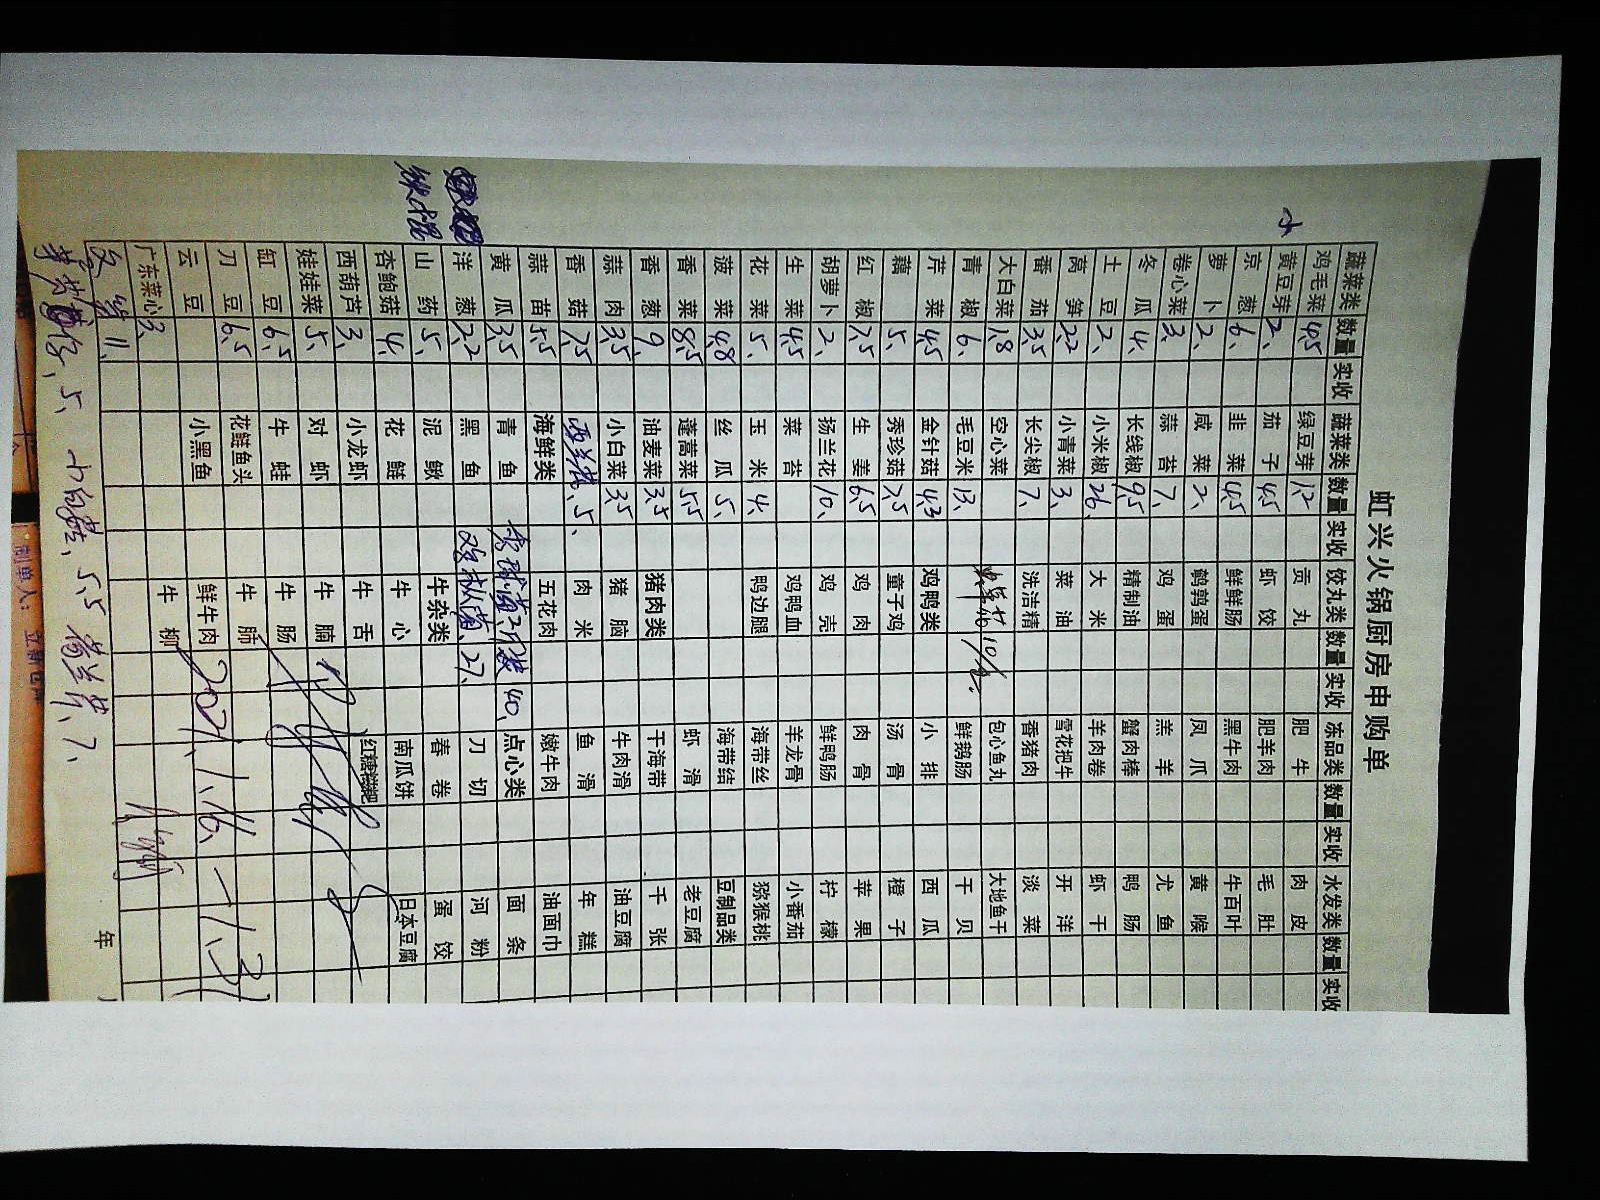 虹兴火锅厨房申购单
蔬菜类 数量 实收 蔬菜类 数量 实收 饺丸类 数量 实收 冻品类 数量 实收 水发类 数量 实收
鸡毛菜 4.5 绿豆芽 1.2 贡丸 肥牛 肉皮
黄豆芽 2、 茄子 4.5 虾饺 肥羊肉 毛肚
京葱 6、 韭菜 4.5 鲜鲜肠 黑牛肉 牛百叶
萝卜 2、 咸菜 2、 鹌鹑蛋 凤爪 黄喉
卷心菜 3、 蒜苔 7、 鸡蛋 羔羊 尤鱼
冬瓜 4、 长线椒 9.5 精制油 蟹肉棒 鸭肠
土豆 2、 小米椒 26、 大米 羊肉卷 虾干
莴笋 2.2 小青菜 3、 菜油 雪花把牛 开洋
番茄 3.5 长尖椒 7、 洗洁精 香猪肉 淡菜
大白菜 1.8 空心菜 包心鱼丸 大地鱼干
青椒 6、 毛豆米 13、 鲜鹅肠 干贝
芹菜 4.5 金针菇 4.3 鸡鸭类 小排 西瓜
藕 5、 秀珍菇 7.5 童子鸡 汤骨 橙子
红椒 7.5 生姜 6.5 鸡肉 肉骨 苹果
胡萝卜 2、 扬兰花 10、 鸡壳 鲜鸭肠 柠檬
生菜 4.5 菜苔 鸡鸭血 羊龙骨 小番茄
花菜 5、 玉米 4、 鸭边腿 海带丝 猕猴桃
菠菜 4.8 丝瓜 5、 海带结 豆制品类
香菜 8.5 蓬蒿菜 5.5 虾滑 老豆腐
香葱 9、 油麦菜 3.5 猪肉类 干海带 千张
蒜肉 3.5 小白菜 3.5 猪脑 牛肉滑 油豆腐
香菇 7.5 西兰花、5、 肉米 鱼滑 年糕
蒜苗 5.5 海鲜类 五花肉 嫩牛肉 油面巾
黄瓜 3.5 青鱼 40、 点心类 面条
洋葱 2.2 黑鱼 鸡枞菌、27、 刀切 河粉
山药 5、 泥鳅 牛杂类 春卷 蛋饺
杏鲍菇 4、 花鲢 牛心 南瓜饼 日本豆腐
西葫芦 3、 小龙虾 牛舌 红糖糍粑
娃娃菜 5、 对虾 牛腩
缸豆 6.5 牛蛙 牛肠
刀豆 6.5 花鲢鱼头
云豆 小黑鱼 鲜牛肉 2021、1、16、一1、31
广东菜心 3、 牛柳
冬笋 11、
年
制单人：